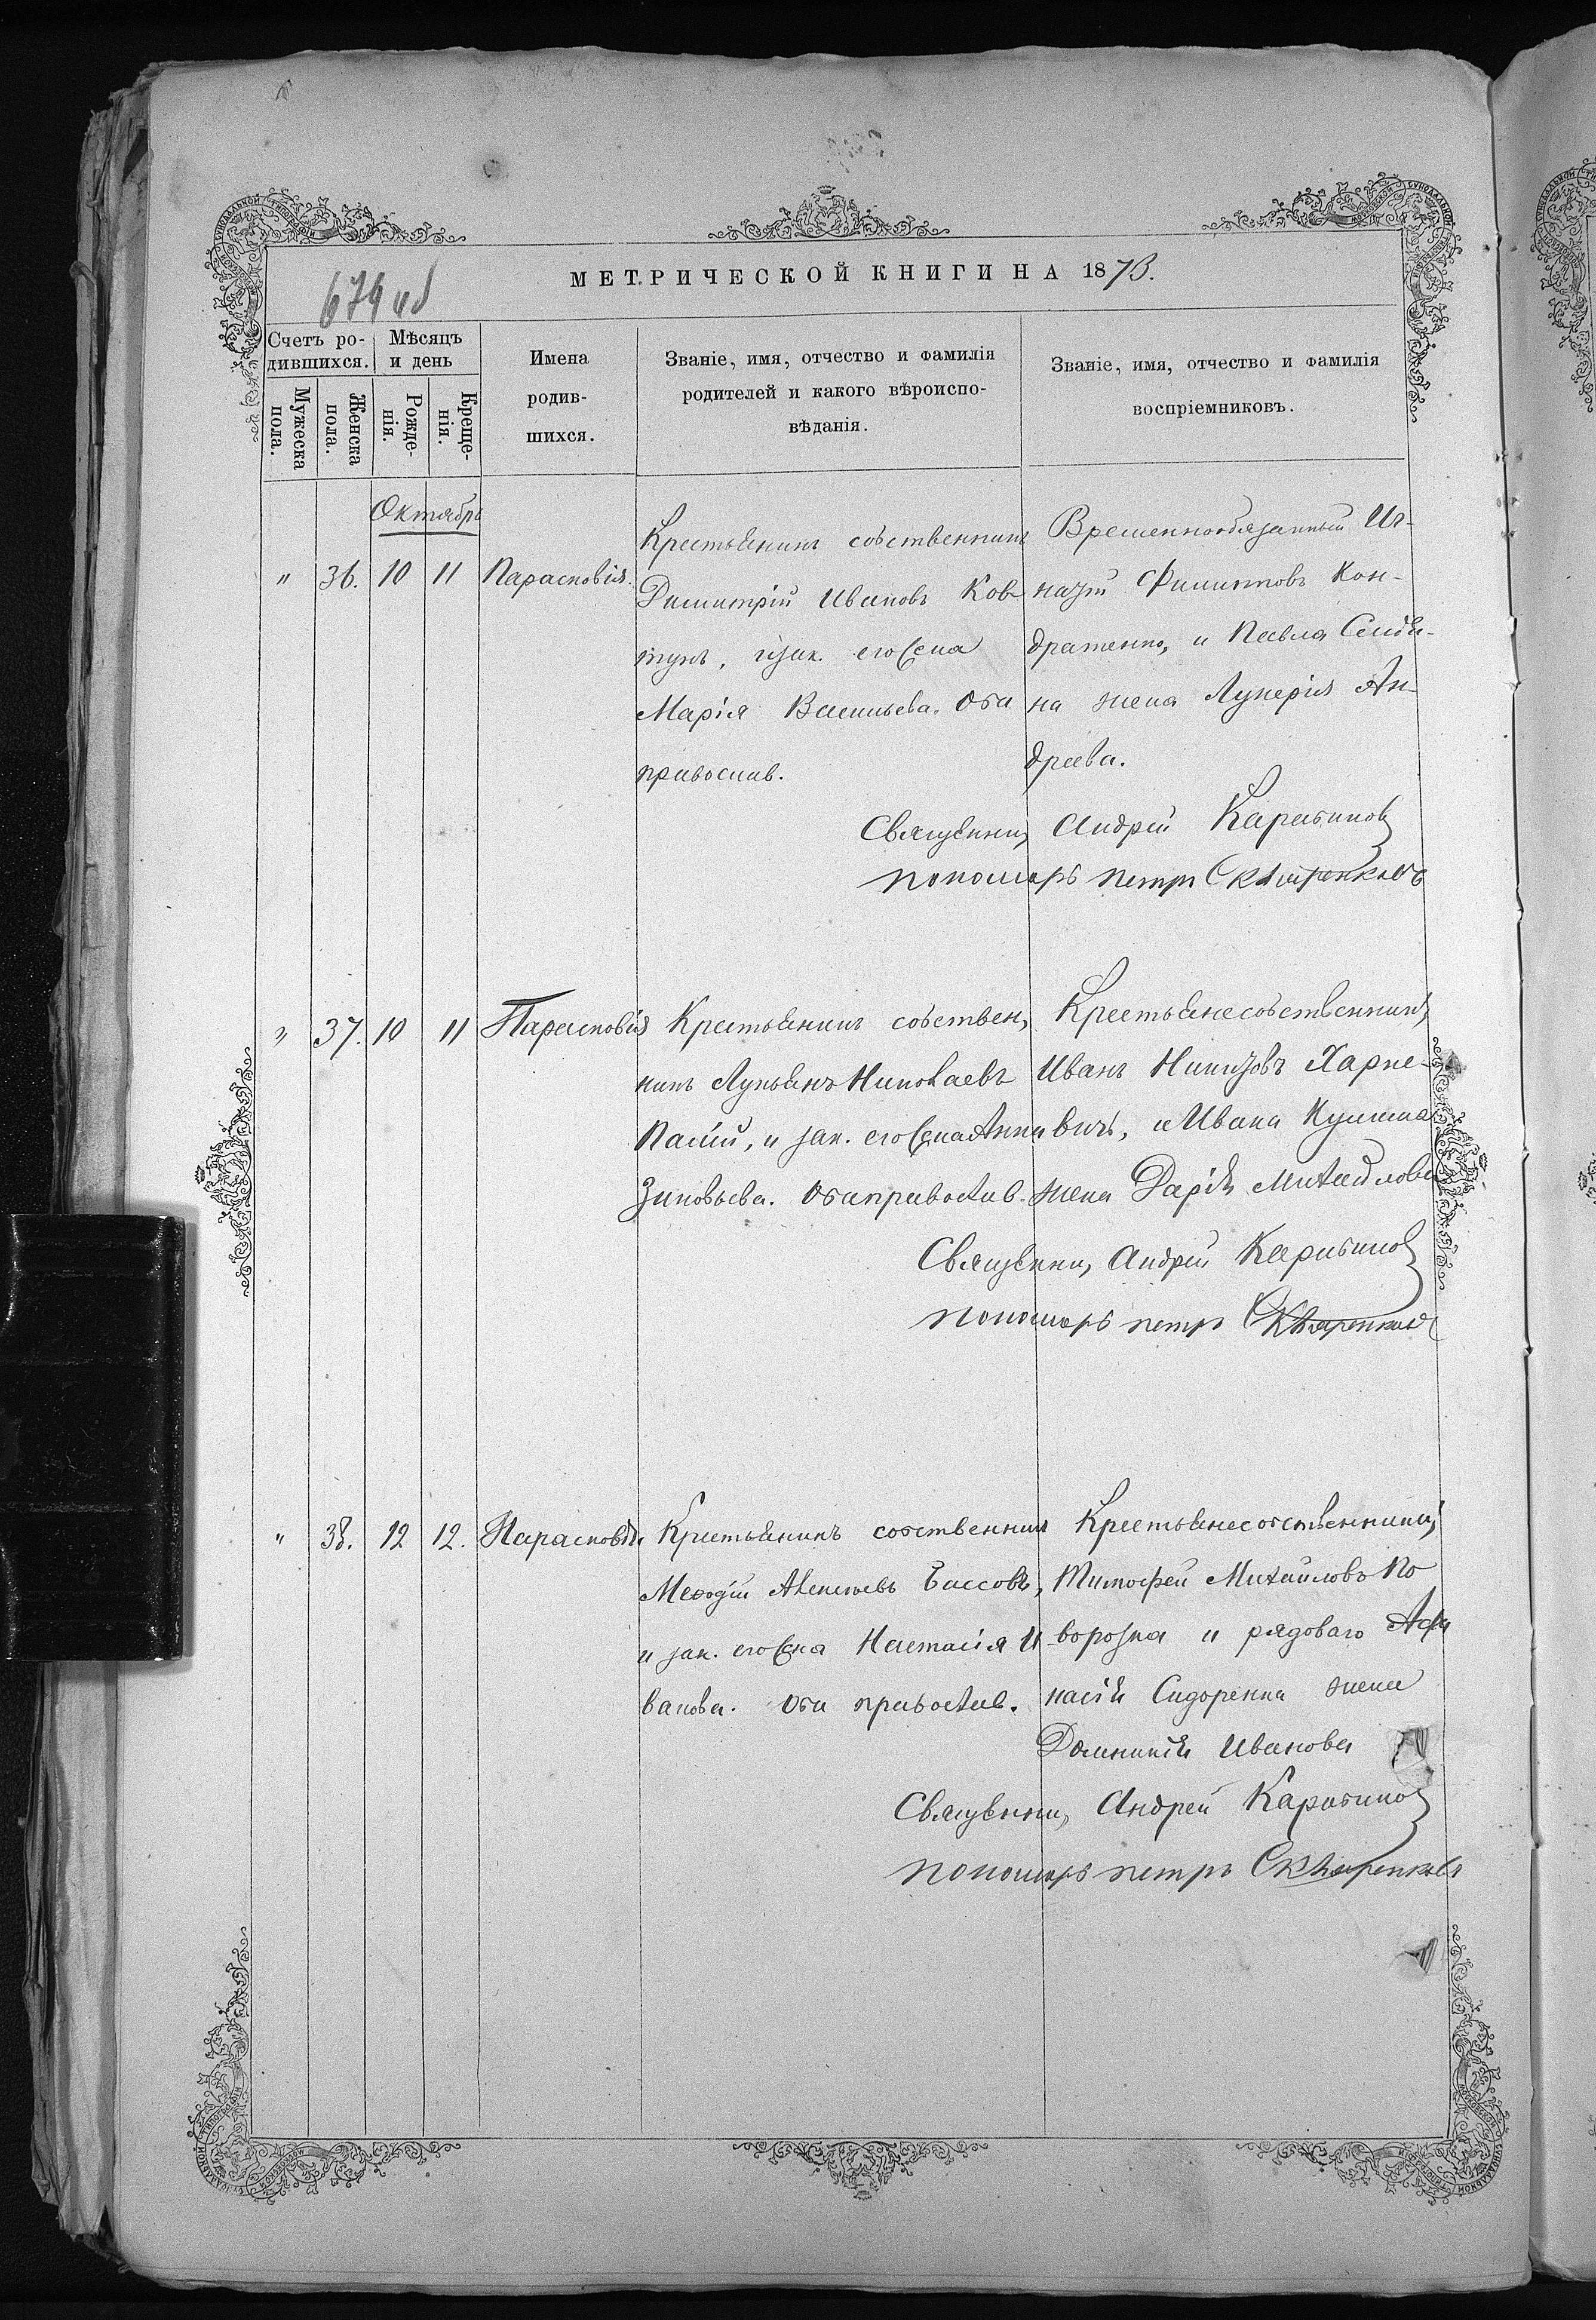 МЕТРИЧЕСКОЙ КНИГИ НА 1873.
679 об
Счетъ ро-
дившихся.
Мѣсяцъ
и день
Мужеска
пола.
Женска
пола.
Рожде-
нія.
Креще-
нія.
Имена
родив-
шихся.
Званіе, имя, отчество и фамилія
родителей и какого вѣроиспо-
вѣданія.
Званіе, имя, отчество и фамилія
воспріемниковъ.
Октябрь
" 36. 10 11 Парасковія.
Крестьянинъ собственникъ
Димитрій Ивановъ Ков
тунъ, и зак. его жена
Марія Васильева. Оба
православ.
Временнообязанный Иг-
натій Филипповъ Кон-
дратенко, и Павла
на жена Лукерія Ан-
дреева.
Священни, Андрей
пономарь петръ
" 37. 10 11 Парасковія
Крестьянинъ собствен,
никъ Лукьянъ Николаевъ
Палій, и зак. его жена Анна
Зиновьева. Оба православ.
Крестьяне собственники,
Иванъ Харке-
вичъ, и Ивана
жена Дарія Михайлова
Священни, Андрей
пономарь петръ
" 38. 12 12. Парасковія
Крестьянинъ собственникъ
Меѳодій
и зак. его жена Настасія И
ванова. Оба православ.
Крестьяне собственники,
Тимофей Михайловъ По
ворозка и рядоваго Афа
насія Сидоренка жена
Домникія Иванова
Священни, Андрей
пономарь петръ